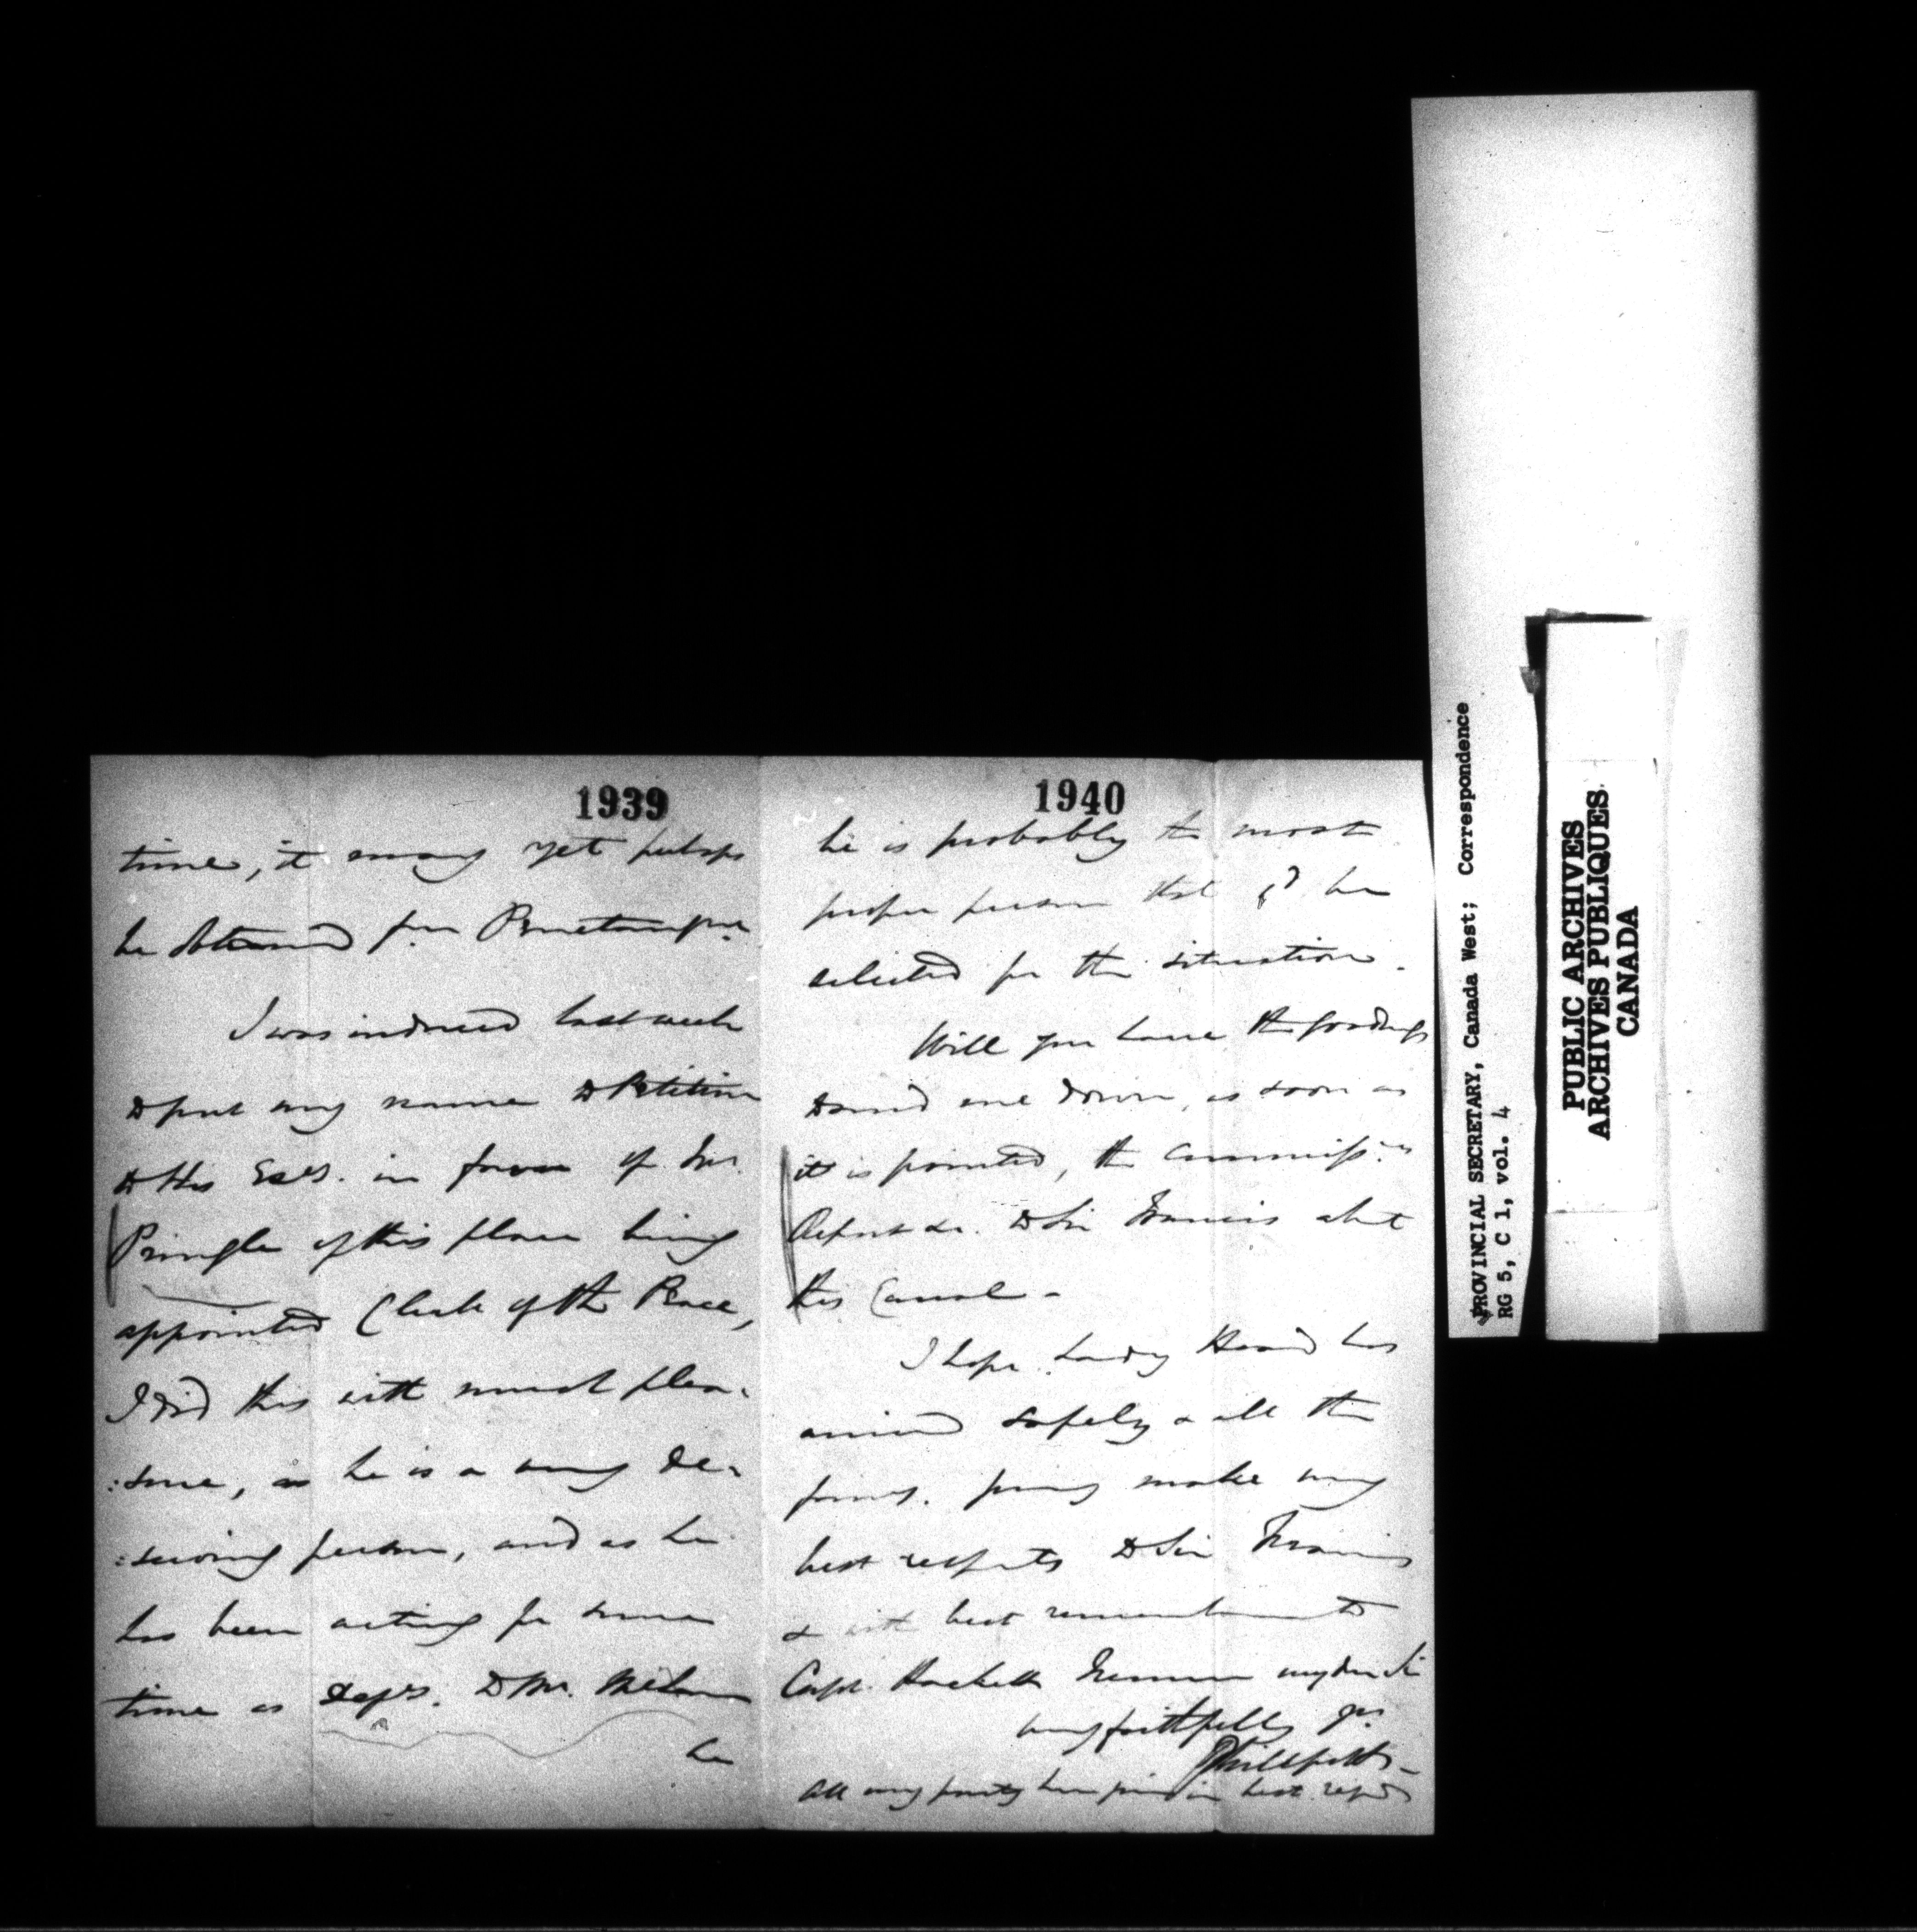 1939
time, it may yet perhaps
be obtained for Penetangue.
I was induced last week
to put my name to Petition
to His Exc'y. in favor of Mr.
Pringle of this place being
appointed Clerk of the Peace,
I did this with much plea-
:sure, as he is a very de-
:serving person, and as he
has been acting for some
time as Dep'y. to Mr.
he
1940
he is probably the most
proper person that c'd be
selected for the situation.
Will you have the goodness
to send me down, as soon as
it is printed, the Commiss.rs
Report &c. to Sir Francis abt
this Canal -
I hope Lady Head has
arrived safely & all the
party. pray make my
best respects to Sir Francis
& with best remembrances to
Capt. Halkett my dear Sir
very faithfully yrs.
Phillpotts -
All my party here join in best regds
PROVINCIAL SECRETARY, Canada West; Correspondence
RG 5, C 1, vol. 4
PUBLIC ARCHIVES
ARCHIVES PUBLIQUES
CANADA